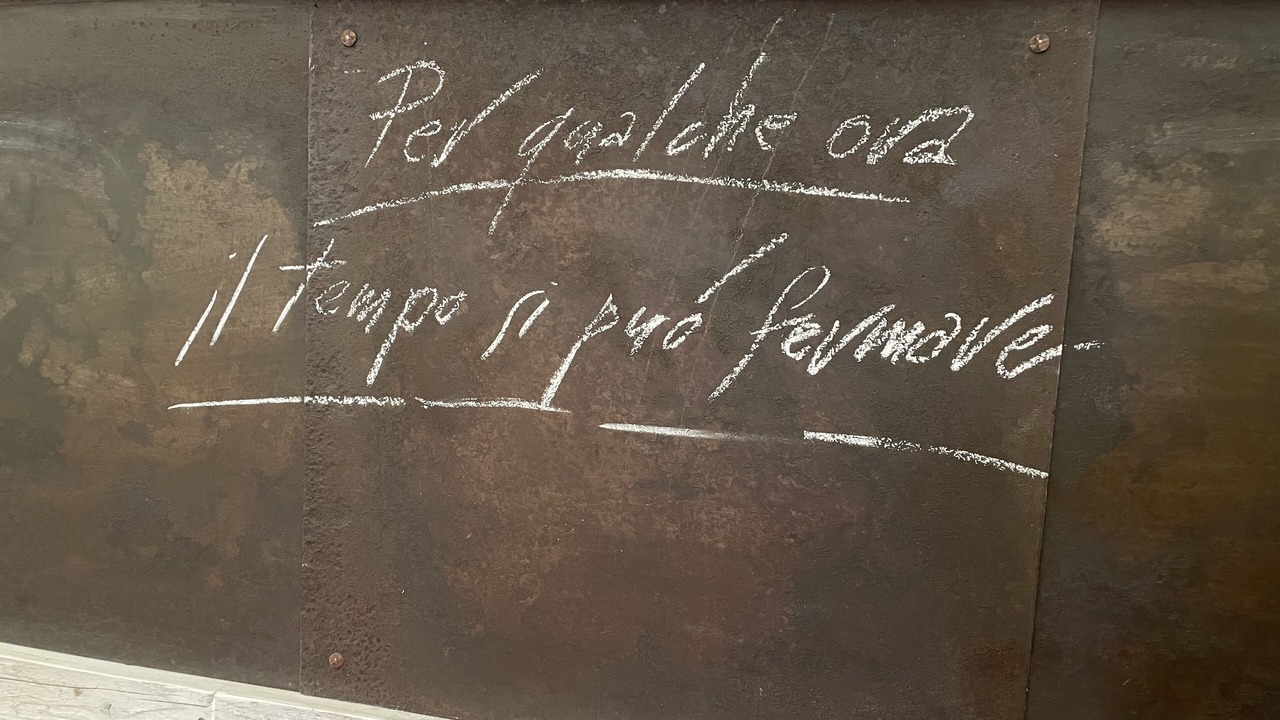 Per qualche ora
il tempo si puó fermare